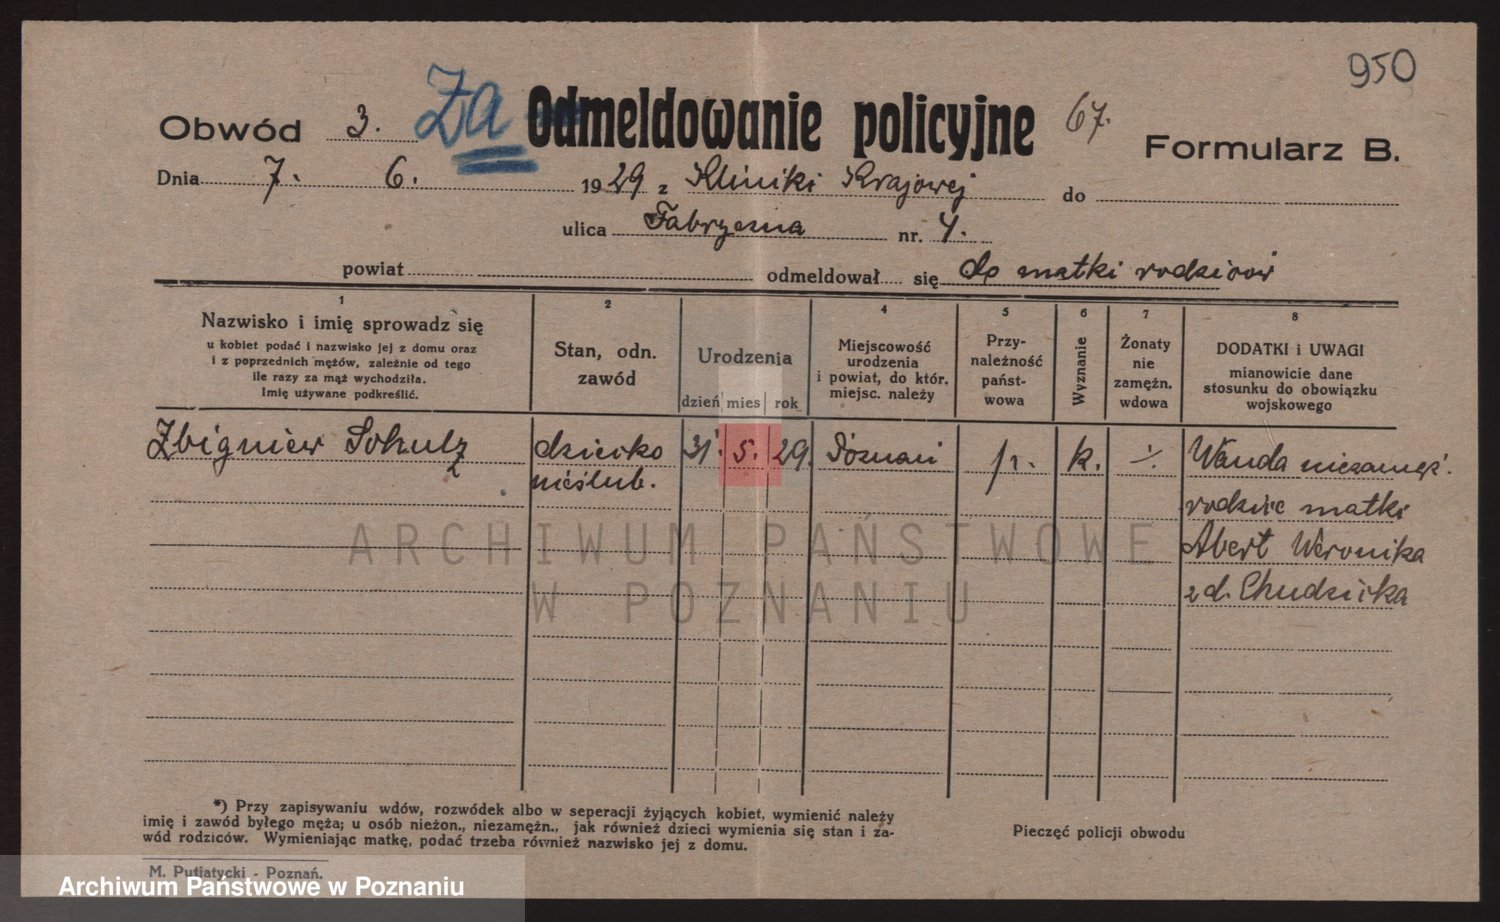 950
Obwód 3. Za Odmeldowanie policyjne 67. Formularz B.
Dnia 7. 6. 1929 z Kliniki Krajowej do
ulica Fabryczna nr. 4.
powiat odmeldował się do matki rodziców
1 2 3 4 5 6 7 8
Nazwisko i imię sprowadz się
u kobiet podać i nazwisko jej z domu oraz
i z poprzednich mężów, zależnie od tego
ile razy za mąż wychodziła.
Imię używane podkreślić.
Stan, odn.
zawód
Urodzenia
dzień mies rok
Miejscowość
urodzenia
i powiat, do któr.
miejsc. należy
Przy-
należność
państ-
wowa
Wyznanie
Żonaty
nie
zamężn.
wdowa
DODATKI i UWAGI
mianowicie dane
stosunku do obowiązku
wojskowego
Zbigniew Schulz dziecko 31. 5. 29. Poznań pr. k. ·/. Wanda niezamęż.
nieślub. rodzice matki
Abert Weronika
z d. Chudzicka
ARCHIWUM PAŃSTWOWE
W POZNANIU
*) Przy zapisywaniu wdów, rozwódek albo w seperacji żyjących kobiet, wymienić należy
imię i zawód byłego męża; u osób nieżon., niezamężn., jak również dzieci wymienia się stan i za-
wód rodziców. Wymieniając matkę, podać trzeba również nazwisko jej z domu.
Pieczęć policji obwodu
M. Putiatycki - Poznań.
Archiwum Państwowe w Poznaniu